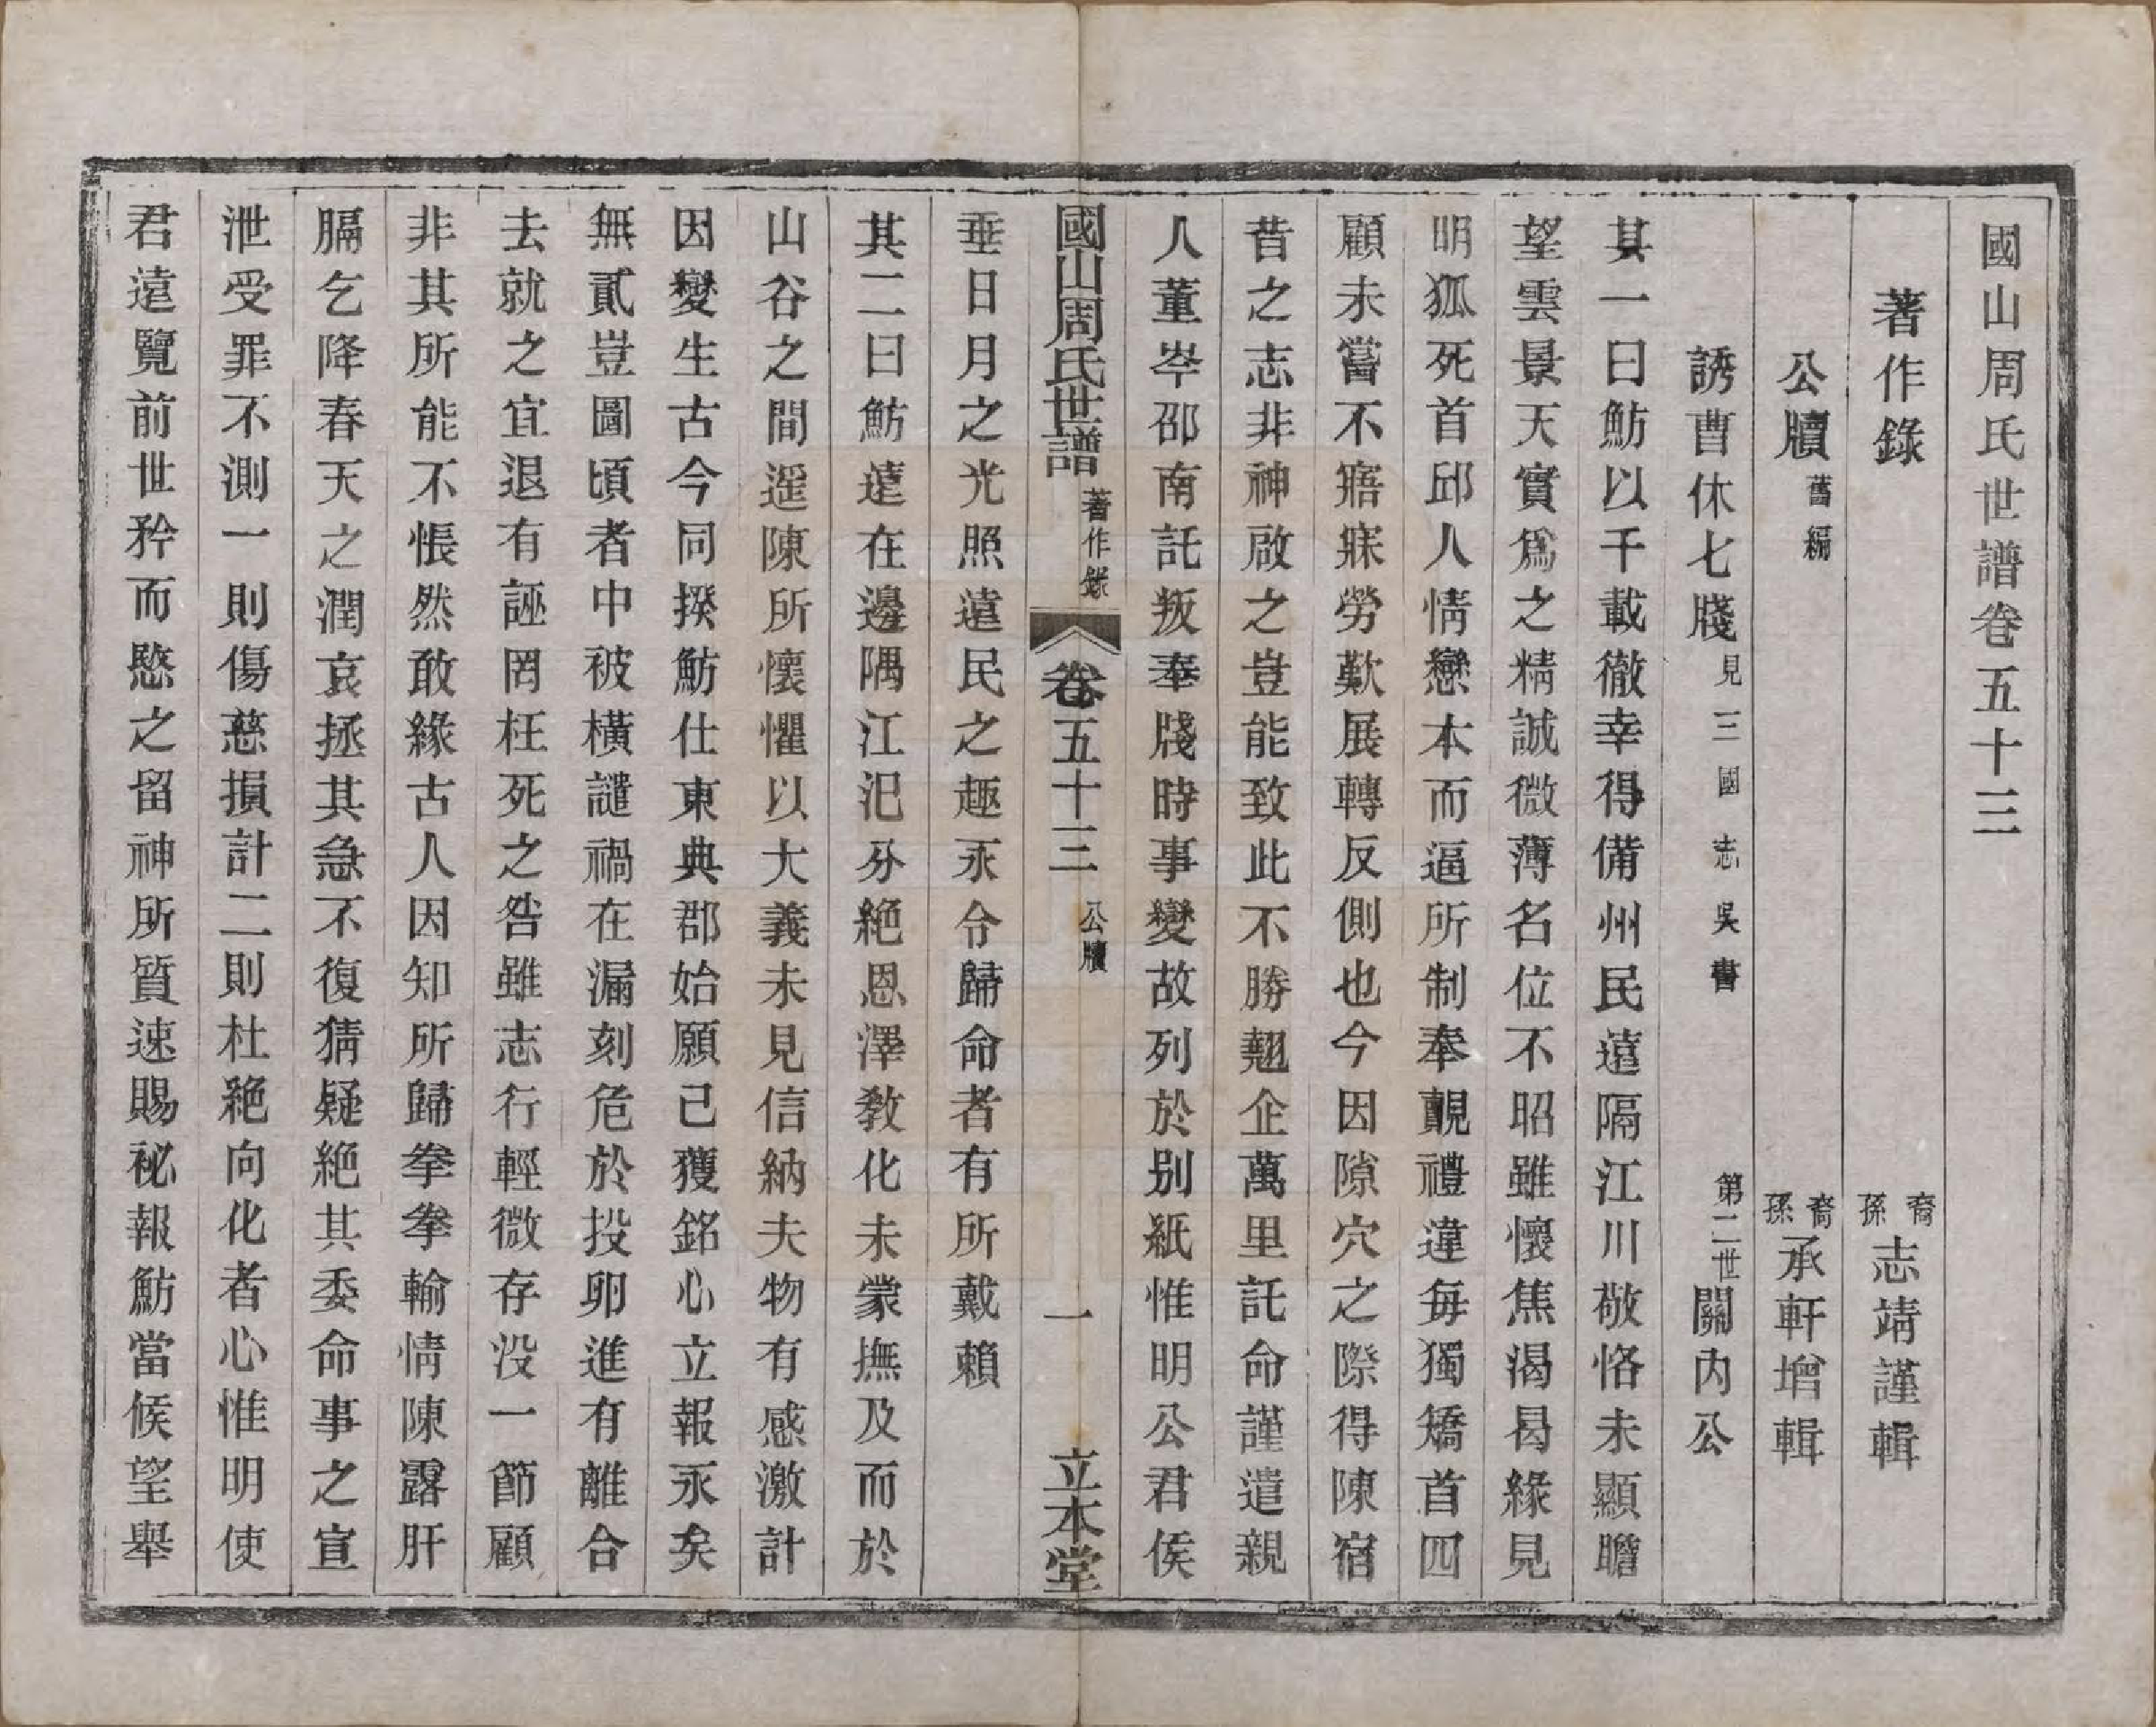 國山周氏世譜卷五十三
著作錄 裔孫志靖謹輯
公牘舊編 裔孫承軒增輯
誘曹休七牋見三國志吳書 第二世關内公
其一曰魴以千載徼幸得備州民遠隔江川敬恪未顯瞻
望雲景天實爲之精誠微薄名位不昭雖懷焦渴曷緣見
明狐死首邱人情戀本而逼所制奉覿禮違每獨矯首四
顧未嘗不寤寐勞歎展轉反側也今因隙穴之際得陳宿
昔之志非神啟之豈能致此不勝翹企萬里託命謹遣親
人董岑邵南託叛奉牋時事變故列於别紙惟明公君侯
國山周氏世譜 著作錄 卷五十三 公牘 一 立本堂
垂日月之光照遠民之趣永令歸命者有所戴賴
其二曰魴遠在邊隅江汜分絶恩澤教化未蒙撫及而於
山谷之間遥陳所懷懼以大義未見信納夫物有感激計
因變生古今同揆魴仕東典郡始願已獲銘心立報永矣
無貳豈圖頃者中被橫譴禍在漏刻危於投卵進有離合
去就之宜退有誣罔枉死之咎雖志行輕微存没一節顧
非其所能不悵然敢緣古人因知所歸拳拳輸情陳露肝
膈乞降春天之潤哀拯其急不復猜疑絶其委命事之宣
泄受罪不測一則傷慈損計二則杜絶向化者心惟明使
君遠覽前世矜而愍之留神所質速賜祕報魴當候望舉